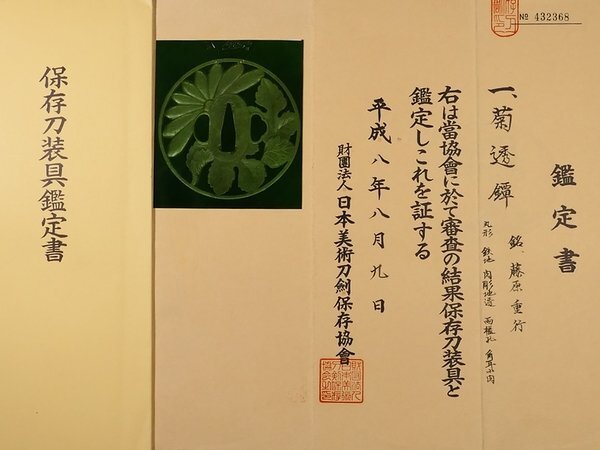 保存刀装具鑑定書
№ 432368
鑑定書
一、菊透鐔
銘、藤原重行
丸形 鉄地 肉彫地透 両櫃孔 角耳小肉
右は當協會に於て審査の結果保存刀装具と
鑑定しこれを証する
平成八年八月九日
財團法人 日本美術刀剣保存協會